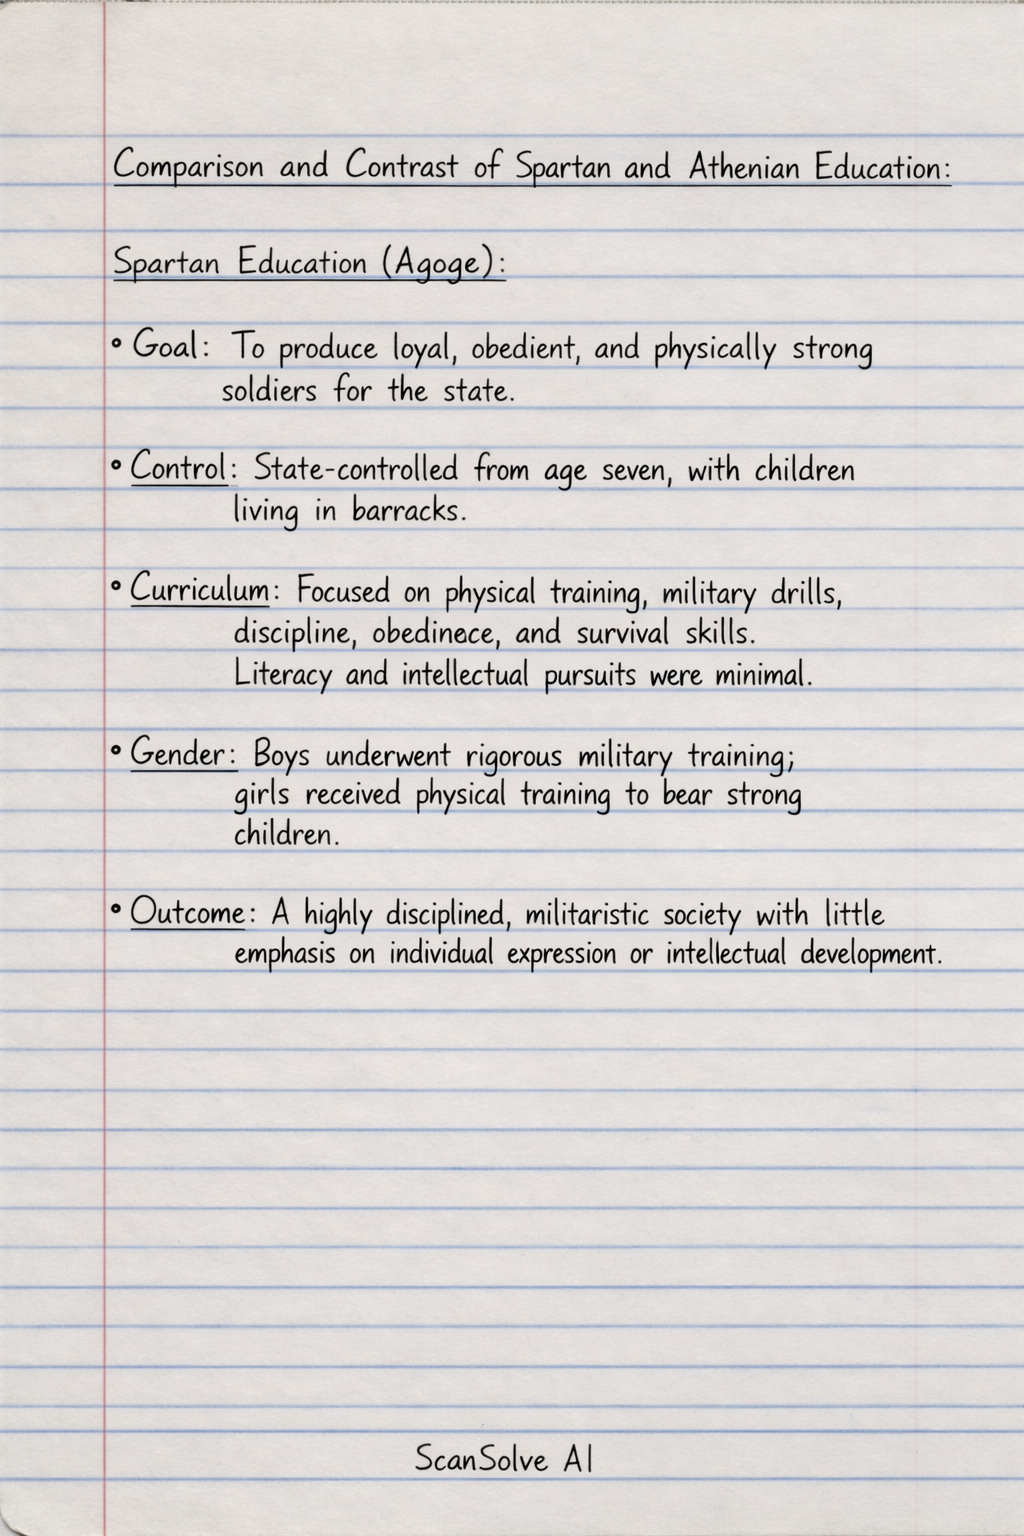 Comparison and Contrast of Spartan and Athenian Education:
Spartan Education (Agoge):
• Goal: To produce loyal, obedient, and physically strong
soldiers for the state.
• Control: State-controlled from age seven, with children
living in barracks.
• Curriculum: Focused on physical training, military drills,
discipline, obedinece, and survival skills.
Literacy and intellectual pursuits were minimal.
• Gender: Boys underwent rigorous military training;
girls received physical training to bear strong
children.
• Outcome: A highly disciplined, militaristic society with little
emphasis on individual expression or intellectual development.
ScanSolve AI